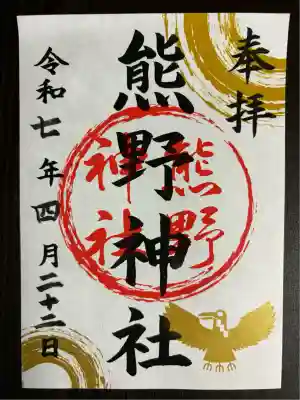 奉拝
熊野神社
熊野
神社
令和七年四月二十二日